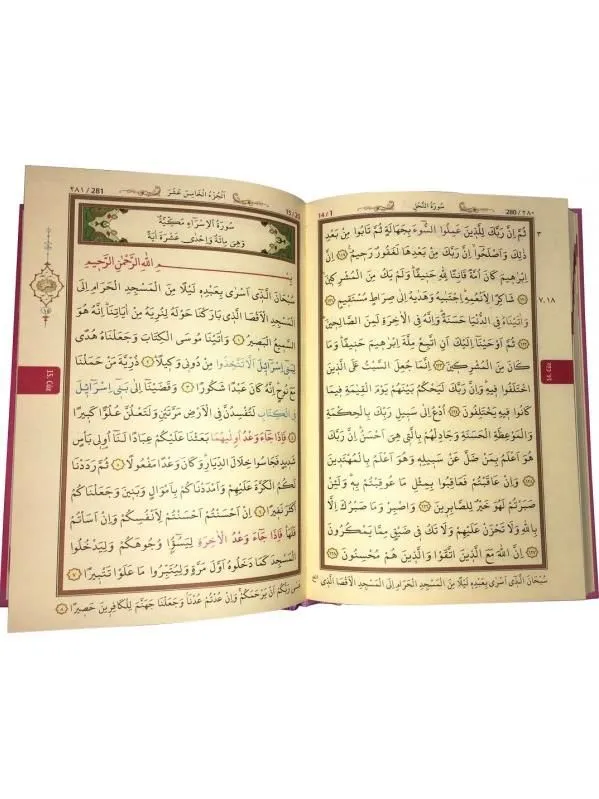 280 / ٢٨٠
سُورَةُ النَّحْلِ
14 / 1
ثُمَّ اِنَّ رَبَّكَ لِلَّذِينَ عَمِلُوا السُّٓوءَ بِجَهَالَةٍ ثُمَّ تَابُوا مِنْ بَعْدِ
ذٰلِكَ وَاَصْلَحُوا اِنَّ رَبَّكَ مِنْ بَعْدِهَا لَغَفُورٌ رَحِيمٌ ﴿١١٩﴾ اِنَّ
اِبْرٰهِيمَ كَانَ اُمَّةً قَانِتًا لِلّٰهِ حَنِيفًا وَلَمْ يَكُ مِنَ الْمُشْرِكِينَ
﴿١٢٠﴾ شَاكِرًا لِاَنْعُمِهِ اِجْتَبٰيهُ وَهَدٰيهُ اِلٰى صِرَاطٍ مُسْتَقِيمٍ ﴿١٢١﴾
وَاٰتَيْنَاهُ فِي الدُّنْيَا حَسَنَةً وَاِنَّهُ فِي الْاٰخِرَةِ لَمِنَ الصَّالِحِينَ
﴿١٢٢﴾ ثُمَّ اَوْحَيْنَٓا اِلَيْكَ اَنِ اتَّبِعْ مِلَّةَ اِبْرٰهِيمَ حَنِيفًا وَمَا
كَانَ مِنَ الْمُشْرِكِينَ ﴿١٢٣﴾ اِنَّمَا جُعِلَ السَّبْتُ عَلَى الَّذِينَ
اخْتَلَفُوا فِيهِ وَاِنَّ رَبَّكَ لَيَحْكُمُ بَيْنَهُمْ يَوْمَ الْقِيٰمَةِ فِيمَا
كَانُوا فِيهِ يَخْتَلِفُونَ ﴿١٢٤﴾ اُدْعُ اِلٰى سَبِيلِ رَبِّكَ بِالْحِكْمَةِ
وَالْمَوْعِظَةِ الْحَسَنَةِ وَجَادِلْهُمْ بِالَّتِي هِيَ اَحْسَنُ اِنَّ رَبَّكَ
هُوَ اَعْلَمُ بِمَنْ ضَلَّ عَنْ سَبِيلِهِ وَهُوَ اَعْلَمُ بِالْمُهْتَدِينَ
﴿١٢٥﴾ وَاِنْ عَاقَبْتُمْ فَعَاقِبُوا بِمِثْلِ مَا عُوقِبْتُمْ بِهِ وَلَئِنْ
صَبَرْتُمْ لَهُوَ خَيْرٌ لِلصَّابِرِينَ ﴿١٢٦﴾ وَاصْبِرْ وَمَا صَبْرُكَ اِلَّا
بِاللّٰهِ وَلَا تَحْزَنْ عَلَيْهِمْ وَلَا تَكُ فِي ضَيْقٍ مِمَّا يَمْكُرُونَ
﴿١٢٧﴾ اِنَّ اللّٰهَ مَعَ الَّذِينَ اتَّقَوْا وَالَّذِينَ هُمْ مُحْسِنُونَ ﴿١٢٨﴾
سُبْحَانَ الَّذِٓي اَسْرٰى بِعَبْدِهِ لَيْلًا مِنَ الْمَسْجِدِ الْحَرَامِ اِلَى الْمَسْجِدِ الْاَقْصَا الَّذِي
٣
٧،١٨
اَلْجُزْءُ الْخَامِسَ عَشَرَ
٢٨١ / 281
سُورَةُ الْاِسْرَٓاءِ مَكِّيَّةٌ
وَهِيَ مِائَةٌ وَاِحْدٰى عَشْرَةَ اٰيَةً
بِسْمِ اللّٰهِ الرَّحْمٰنِ الرَّحِيمِ
سُبْحَانَ الَّذِٓي اَسْرٰى بِعَبْدِهِ لَيْلًا مِنَ الْمَسْجِدِ الْحَرَامِ اِلَى
الْمَسْجِدِ الْاَقْصَا الَّذِي بَارَكْنَا حَوْلَهُ لِنُرِيَهُ مِنْ اٰيَاتِنَا اِنَّهُ هُوَ
السَّمِيعُ الْبَصِيرُ ﴿١﴾ وَاٰتَيْنَا مُوسَى الْكِتَابَ وَجَعَلْنَاهُ هُدًى
لِبَنِٓي اِسْرَٓائِلَ اَلَّا تَتَّخِذُوا مِنْ دُونِي وَكِيلًا ﴿٢﴾ ذُرِّيَّةَ مَنْ حَمَلْنَا
مَعَ نُوحٍ اِنَّهُ كَانَ عَبْدًا شَكُورًا ﴿٣﴾ وَقَضَيْنَٓا اِلٰى بَنِٓي اِسْرَٓائِلَ
فِي الْكِتَابِ لَتُفْسِدُنَّ فِي الْاَرْضِ مَرَّتَيْنِ وَلَتَعْلُنَّ عُلُوًّا كَبِيرًا
﴿٤﴾ فَاِذَا جَٓاءَ وَعْدُ اُولٰيهُمَا بَعَثْنَا عَلَيْكُمْ عِبَادًا لَنَٓا اُولِي بَأْسٍ
شَدِيدٍ فَجَاسُوا خِلَالَ الدِّيَارِ وَكَانَ وَعْدًا مَفْعُولًا ﴿٥﴾ ثُمَّ رَدَدْنَا
لَكُمُ الْكَرَّةَ عَلَيْهِمْ وَاَمْدَدْنَاكُمْ بِاَمْوَالٍ وَبَنِينَ وَجَعَلْنَاكُمْ
اَكْثَرَ نَفِيرًا ﴿٦﴾ اِنْ اَحْسَنْتُمْ اَحْسَنْتُمْ لِاَنْفُسِكُمْ وَاِنْ اَسَأْتُمْ
فَلَهَا فَاِذَا جَٓاءَ وَعْدُ الْاٰخِرَةِ لِيَسُٓؤُا وُجُوهَكُمْ وَلِيَدْخُلُوا
الْمَسْجِدَ كَمَا دَخَلُوهُ اَوَّلَ مَرَّةٍ وَلِيُتَبِّرُوا مَا عَلَوْا تَتْبِيرًا ﴿٧﴾
عَسٰى رَبُّكُمْ اَنْ يَرْحَمَكُمْ وَاِنْ عُدْتُمْ عُدْنَا وَجَعَلْنَا جَهَنَّمَ لِلْكَافِرِينَ حَصِيرًا ﴿٨﴾
15. Cüz